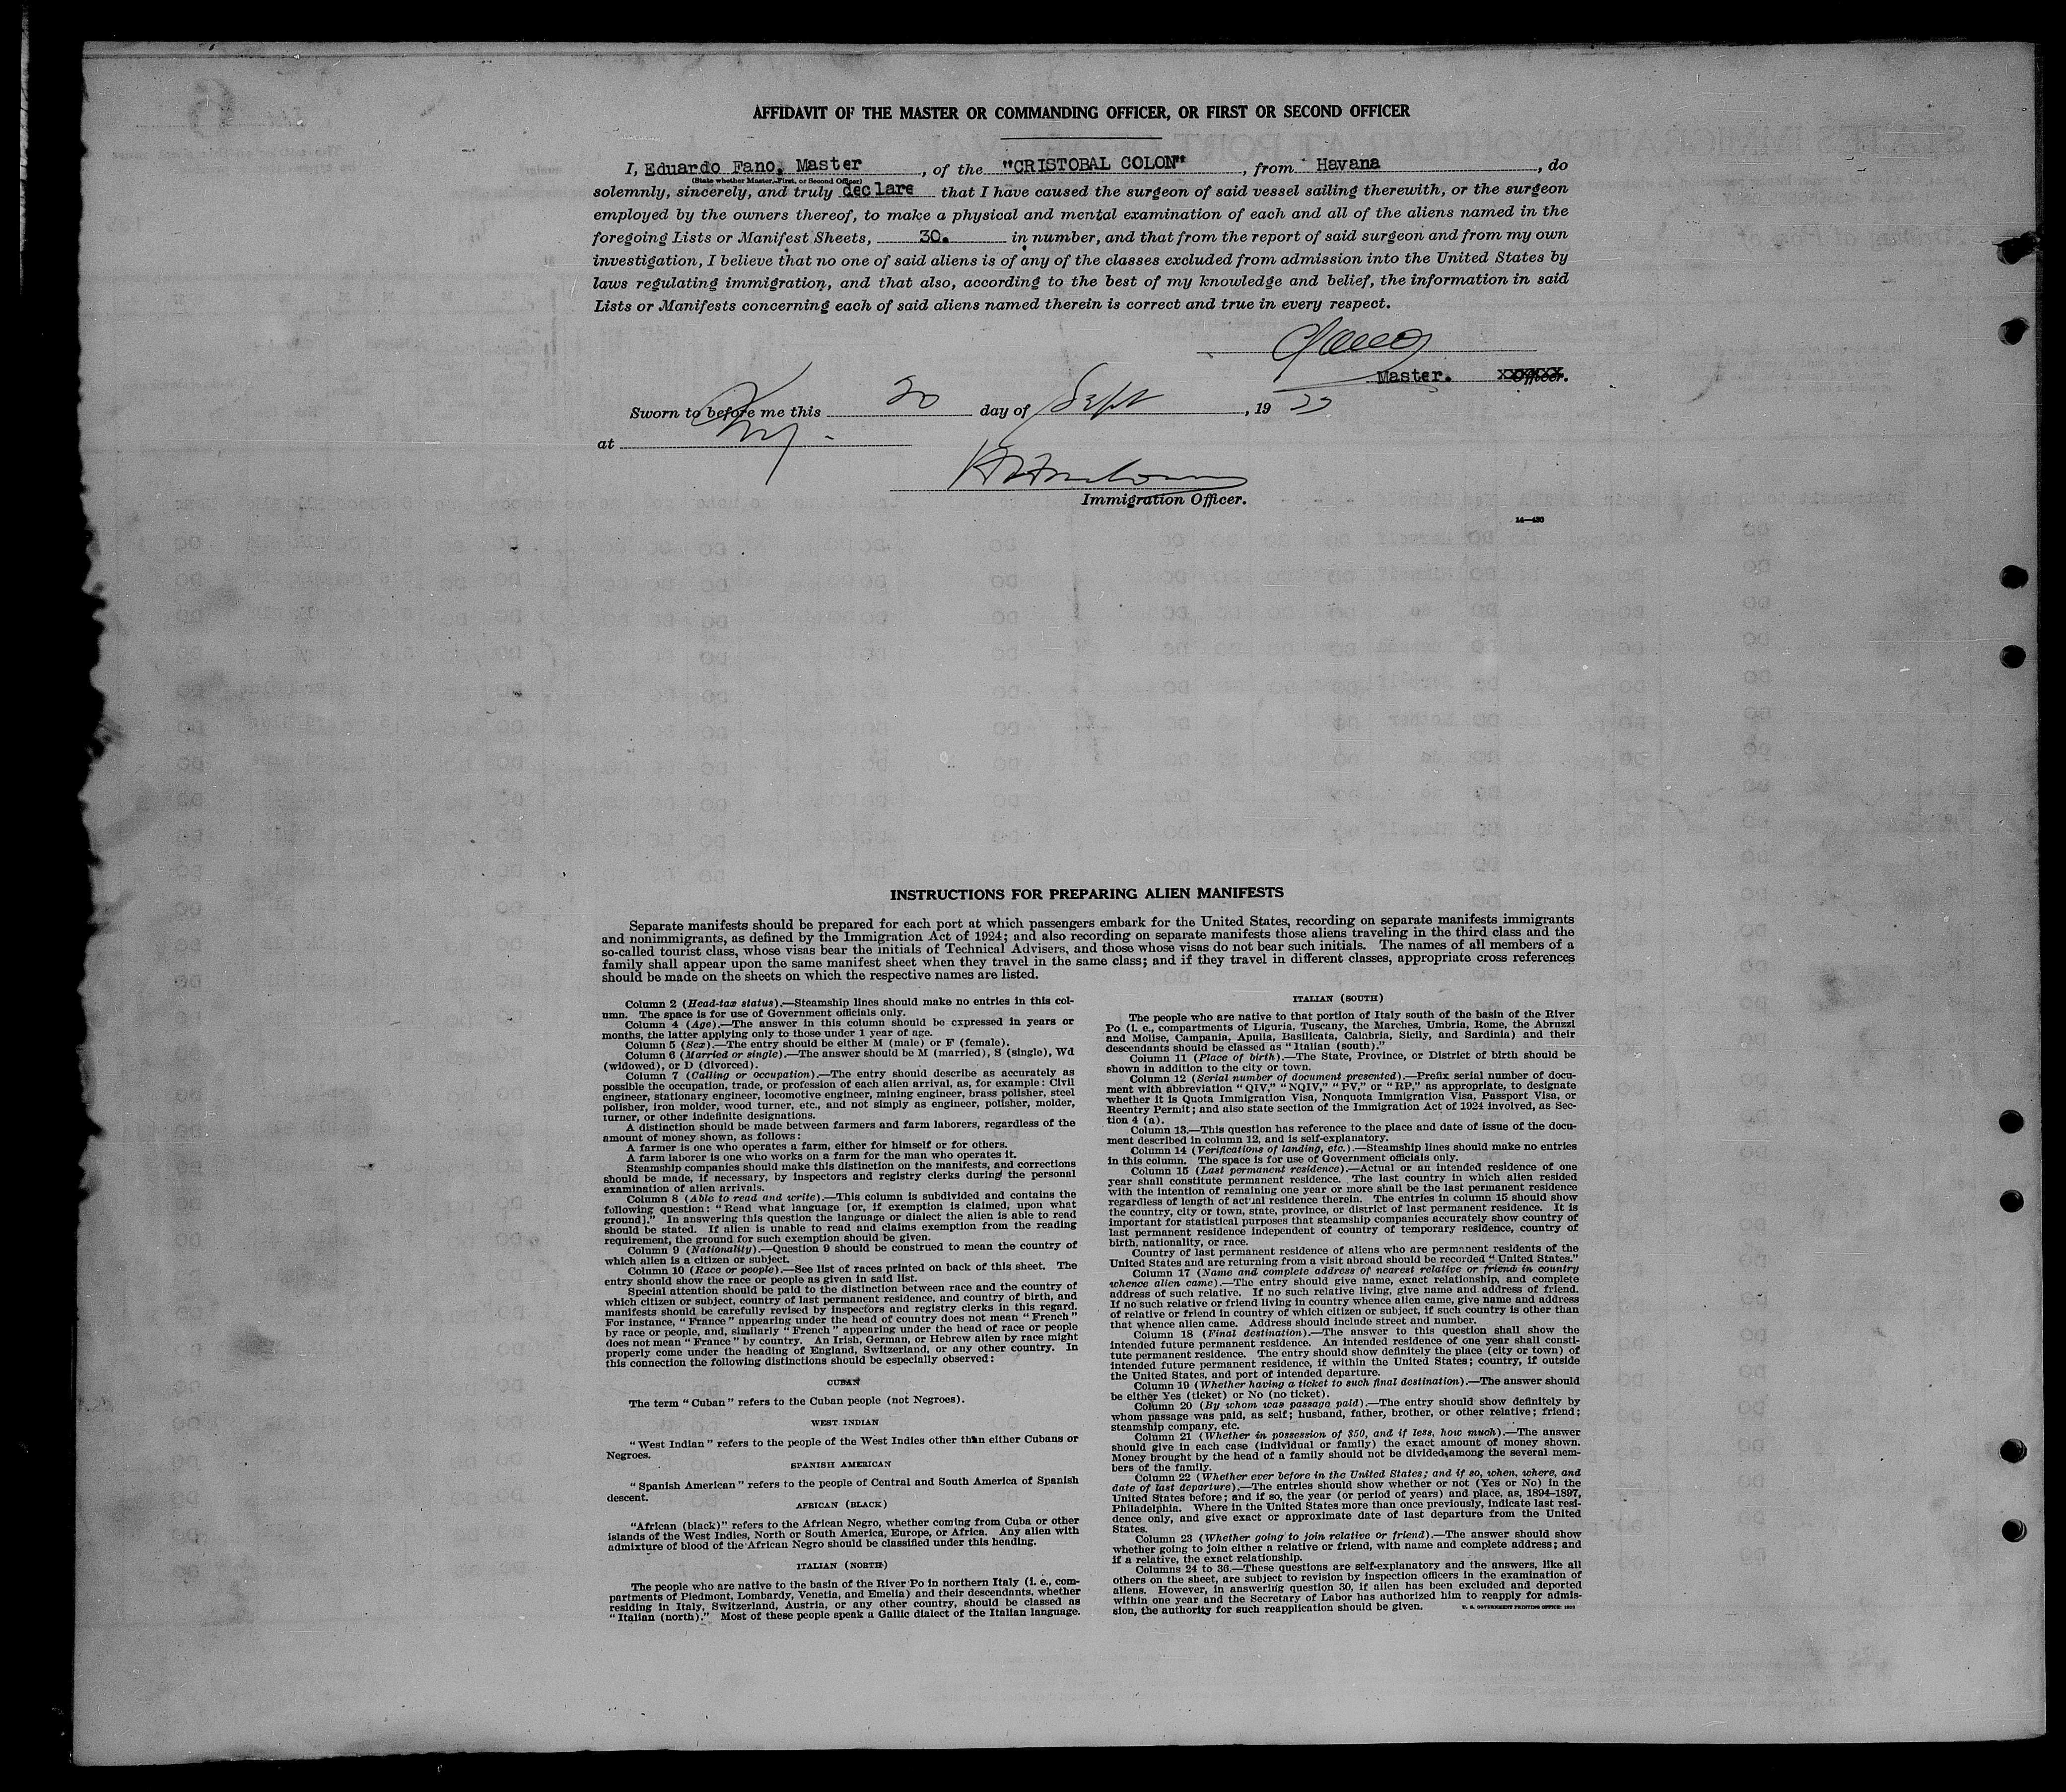 AFFIDAVIT OF THE MASTER OR COMMANDING OFFICER, OR FIRST OR SECOND OFFICER
I, Eduardo Fano, Master, of the "CRISTOBAL COLON", from Havana, do
(State whether Master, First, or Second Officer)
solemnly, sincerely, and truly declare that I have caused the surgeon of said vessel sailing therewith, or the surgeon
employed by the owners thereof, to make a physical and mental examination of each and all of the aliens named in the
foregoing Lists or Manifest Sheets, 30. in number, and that from the report of said surgeon and from my own
investigation, I believe that no one of said aliens is of any of the classes excluded from admission into the United States by
laws regulating immigration, and that also, according to the best of my knowledge and belief, the information in said
Lists or Manifests concerning each of said aliens named therein is correct and true in every respect.
Master. Officer.
Sworn to before me this 20 day of Sept, 19
at NY.
Immigration Officer.
14—430
INSTRUCTIONS FOR PREPARING ALIEN MANIFESTS
Separate manifests should be prepared for each port at which passengers embark for the United States, recording on separate manifests immigrants
and nonimmigrants, as defined by the Immigration Act of 1924; and also recording on separate manifests those aliens traveling in the third class and the
so-called tourist class, whose visas bear the initials of Technical Advisers, and those whose visas do not bear such initials. The names of all members of a
family shall appear upon the same manifest sheet when they travel in the same class; and if they travel in different classes, appropriate cross references
should be made on the sheets on which the respective names are listed.
Column 2 (Head-tax status).—Steamship lines should make no entries in this col-
umn. The space is for use of Government officials only.
Column 4 (Age).—The answer in this column should be expressed in years or
months, the latter applying only to those under 1 year of age.
Column 5 (Sex).—The entry should be either M (male) or F (female).
Column 6 (Married or single).—The answer should be M (married), S (single), Wd
(widowed), or D (divorced).
Column 7 (Calling or occupation).—The entry should describe as accurately as
possible the occupation, trade, or profession of each alien arrival, as, for example: Civil
engineer, stationary engineer, locomotive engineer, mining engineer, brass polisher, steel
polisher, iron molder, wood turner, etc., and not simply as engineer, polisher, molder,
turner, or other indefinite designations.
A distinction should be made between farmers and farm laborers, regardless of the
amount of money shown, as follows:
A farmer is one who operates a farm, either for himself or for others.
A farm laborer is one who works on a farm for the man who operates it.
Steamship companies should make this distinction on the manifests, and corrections
should be made, if necessary, by inspectors and registry clerks during the personal
examination of alien arrivals.
Column 8 (Able to read and write).—This column is subdivided and contains the
following question: "Read what language [or, if exemption is claimed, upon what
ground]." In answering this question the language or dialect the alien is able to read
should be stated. If alien is unable to read and claims exemption from the reading
requirement, the ground for such exemption should be given.
Column 9 (Nationality).—Question 9 should be construed to mean the country of
which alien is a citizen or subject.
Column 10 (Race or people).—See list of races printed on back of this sheet. The
entry should show the race or people as given in said list.
Special attention should be paid to the distinction between race and the country of
which citizen or subject, country of last permanent residence, and country of birth, and
manifests should be carefully revised by inspectors and registry clerks in this regard.
For instance, "France" appearing under the head of country does not mean "French"
by race or people, and, similarly "French" appearing under the head of race or people
does not mean "France" by country. An Irish, German, or Hebrew alien by race might
properly come under the heading of England, Switzerland, or any other country. In
this connection the following distinctions should be especially observed:
CUBAN
The term "Cuban" refers to the Cuban people (not Negroes).
WEST INDIAN
"West Indian" refers to the people of the West Indies other than either Cubans or
Negroes.
SPANISH AMERICAN
"Spanish American" refers to the people of Central and South America of Spanish
descent.
AFRICAN (BLACK)
"African (black)" refers to the African Negro, whether coming from Cuba or other
islands of the West Indies, North or South America, Europe, or Africa. Any alien with
admixture of blood of the African Negro should be classified under this heading.
ITALIAN (NORTH)
The people who are native to the basin of the River Po in northern Italy (i. e., com-
partments of Piedmont, Lombardy, Venetia, and Emelia) and their descendants, whether
residing in Italy, Switzerland, Austria, or any other country, should be classed as
"Italian (north)." Most of these people speak a Gallic dialect of the Italian language.
ITALIAN (SOUTH)
The people who are native to that portion of Italy south of the basin of the River
Po (i. e., compartments of Liguria, Tuscany, the Marches, Umbria, Rome, the Abruzzi
and Molise, Campania, Apulia, Basilicata, Calabria, Sicily, and Sardinia) and their
descendants should be classed as "Italian (south)."
Column 11 (Place of birth).—The State, Province, or District of birth should be
shown in addition to the city or town.
Column 12 (Serial number of document presented).—Prefix serial number of docu-
ment with abbreviation "QIV," "NQIV," "PV," or "RP," as appropriate, to designate
whether it is Quota Immigration Visa, Nonquota Immigration Visa, Passport Visa, or
Reentry Permit; and also state section of the Immigration Act of 1924 involved, as Sec-
tion 4 (a).
Column 13.—This question has reference to the place and date of issue of the docu-
ment described in column 12, and is self-explanatory.
Column 14 (Verifications of landing, etc.).—Steamship lines should make no entries
in this column. The space is for use of Government officials only.
Column 15 (Last permanent residence).—Actual or an intended residence of one
year shall constitute permanent residence. The last country in which alien resided
with the intention of remaining one year or more shall be the last permanent residence
regardless of length of actual residence therein. The entries in column 15 should show
the country, city or town, state, province, or district of last permanent residence. It is
important for statistical purposes that steamship companies accurately show country of
last permanent residence independent of country of temporary residence, country of
birth, nationality, or race.
Country of last permanent residence of aliens who are permanent residents of the
United States and are returning from a visit abroad should be recorded "United States."
Column 17 (Name and complete address of nearest relative or friend in country
whence alien came).—The entry should give name, exact relationship, and complete
address of such relative. If no such relative living, give name and address of friend.
If no such relative or friend living in country whence alien came, give name and address
of relative or friend in country of which citizen or subject, if such country is other than
that whence alien came. Address should include street and number.
Column 18 (Final destination).—The answer to this question shall show the
intended future permanent residence. An intended residence of one year shall consti-
tute permanent residence. The entry should show definitely the place (city or town) of
intended future permanent residence, if within the United States; country, if outside
the United States, and port of intended departure.
Column 19 (Whether having a ticket to such final destination).—The answer should
be either Yes (ticket) or No (no ticket).
Column 20 (By whom was passage paid).—The entry should show definitely by
whom passage was paid, as self; husband, father, brother, or other relative; friend;
steamship company, etc.
Column 21 (Whether in possession of $50, and if less, how much).—The answer
should give in each case (individual or family) the exact amount of money shown.
Money brought by the head of a family should not be divided among the several mem-
bers of the family.
Column 22 (Whether ever before in the United States; and if so, when, where, and
date of last departure).—The entries should show whether or not (Yes or No) in the
United States before; and if so, the year (or period of years) and place, as, 1894–1897,
Philadelphia. Where in the United States more than once previously, indicate last resi-
dence only, and give exact or approximate date of last departure from the United
States.
Column 23 (Whether going to join relative or friend).—The answer should show
whether going to join either a relative or friend, with name and complete address; and
if a relative, the exact relationship.
Columns 24 to 36.—These questions are self-explanatory and the answers, like all
others on the sheet, are subject to revision by inspection officers in the examination of
aliens. However, in answering question 30, if alien has been excluded and deported
within one year and the Secretary of Labor has authorized him to reapply for admis-
sion, the authority for such reapplication should be given.
U. S. GOVERNMENT PRINTING OFFICE